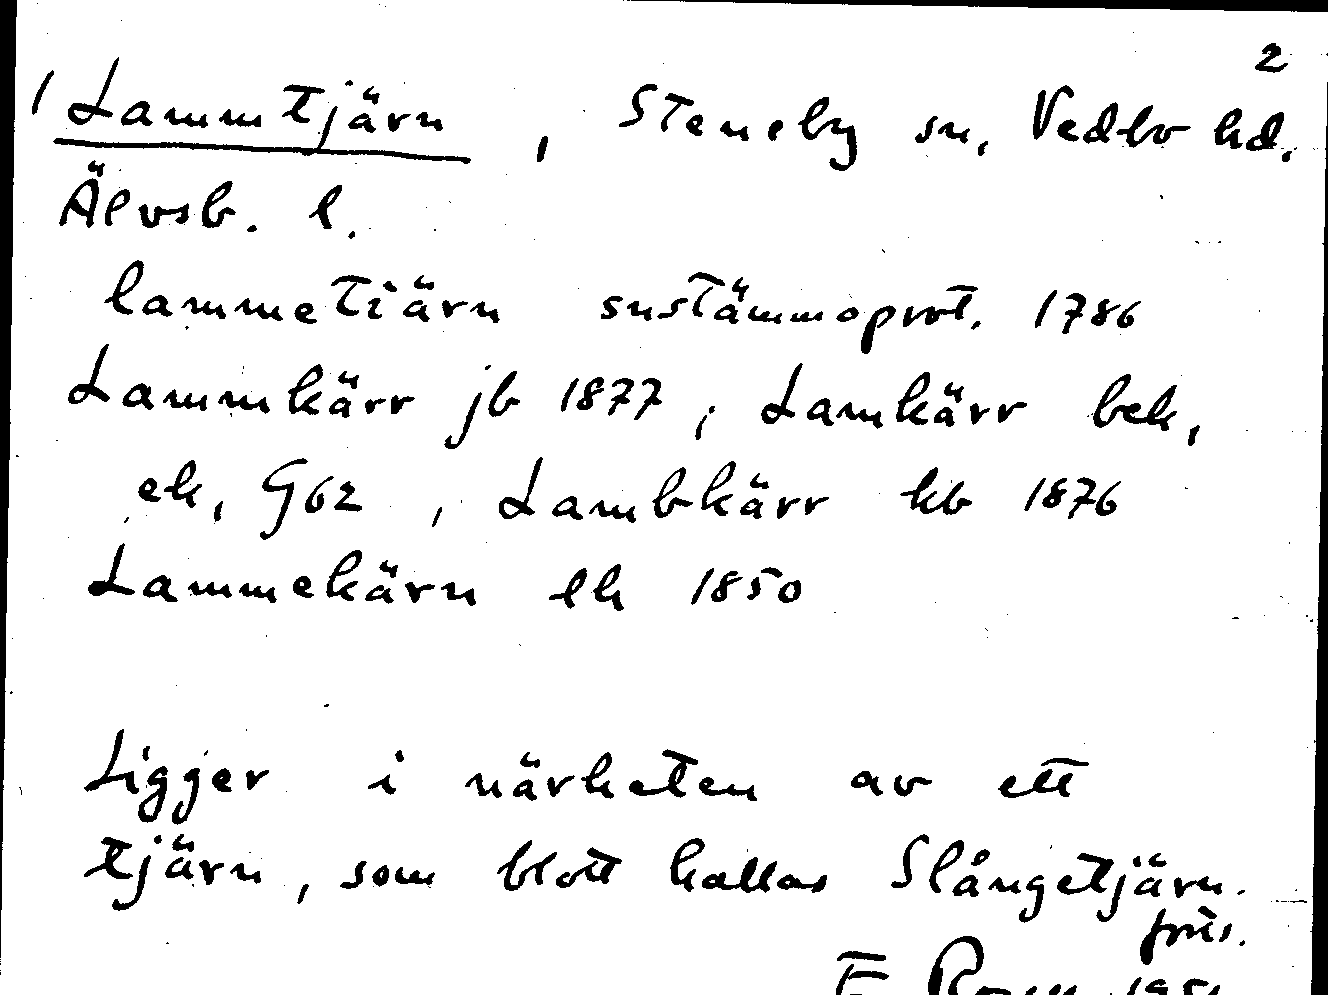 2
1 Lammtjärn, Steneby sn, Vedbo hd.
Älvsb. l.
lammetiärn snstämmoprot. 1786
Lammkärr jb 1877, Lamkärr bek,
ek, G62, Lambkärr kb 1876
Lammekärn lk 1850
Ligger i närheten av ett
tjärn, som blott kallas Slångetjärn.